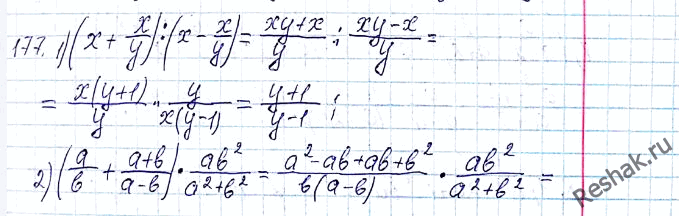 177. 1) (x + x/y) : (x - x/y) = (xy+x)/y : (xy-x)/y =
= x(y+1)/y · y/x(y-1) = (y+1)/(y-1) ;
2) (a/b + (a+b)/(a-b)) · ab²/(a²+b²) = (a²-ab+ab+b²)/b(a-b) · ab²/(a²+b²) =
Reshak.ru